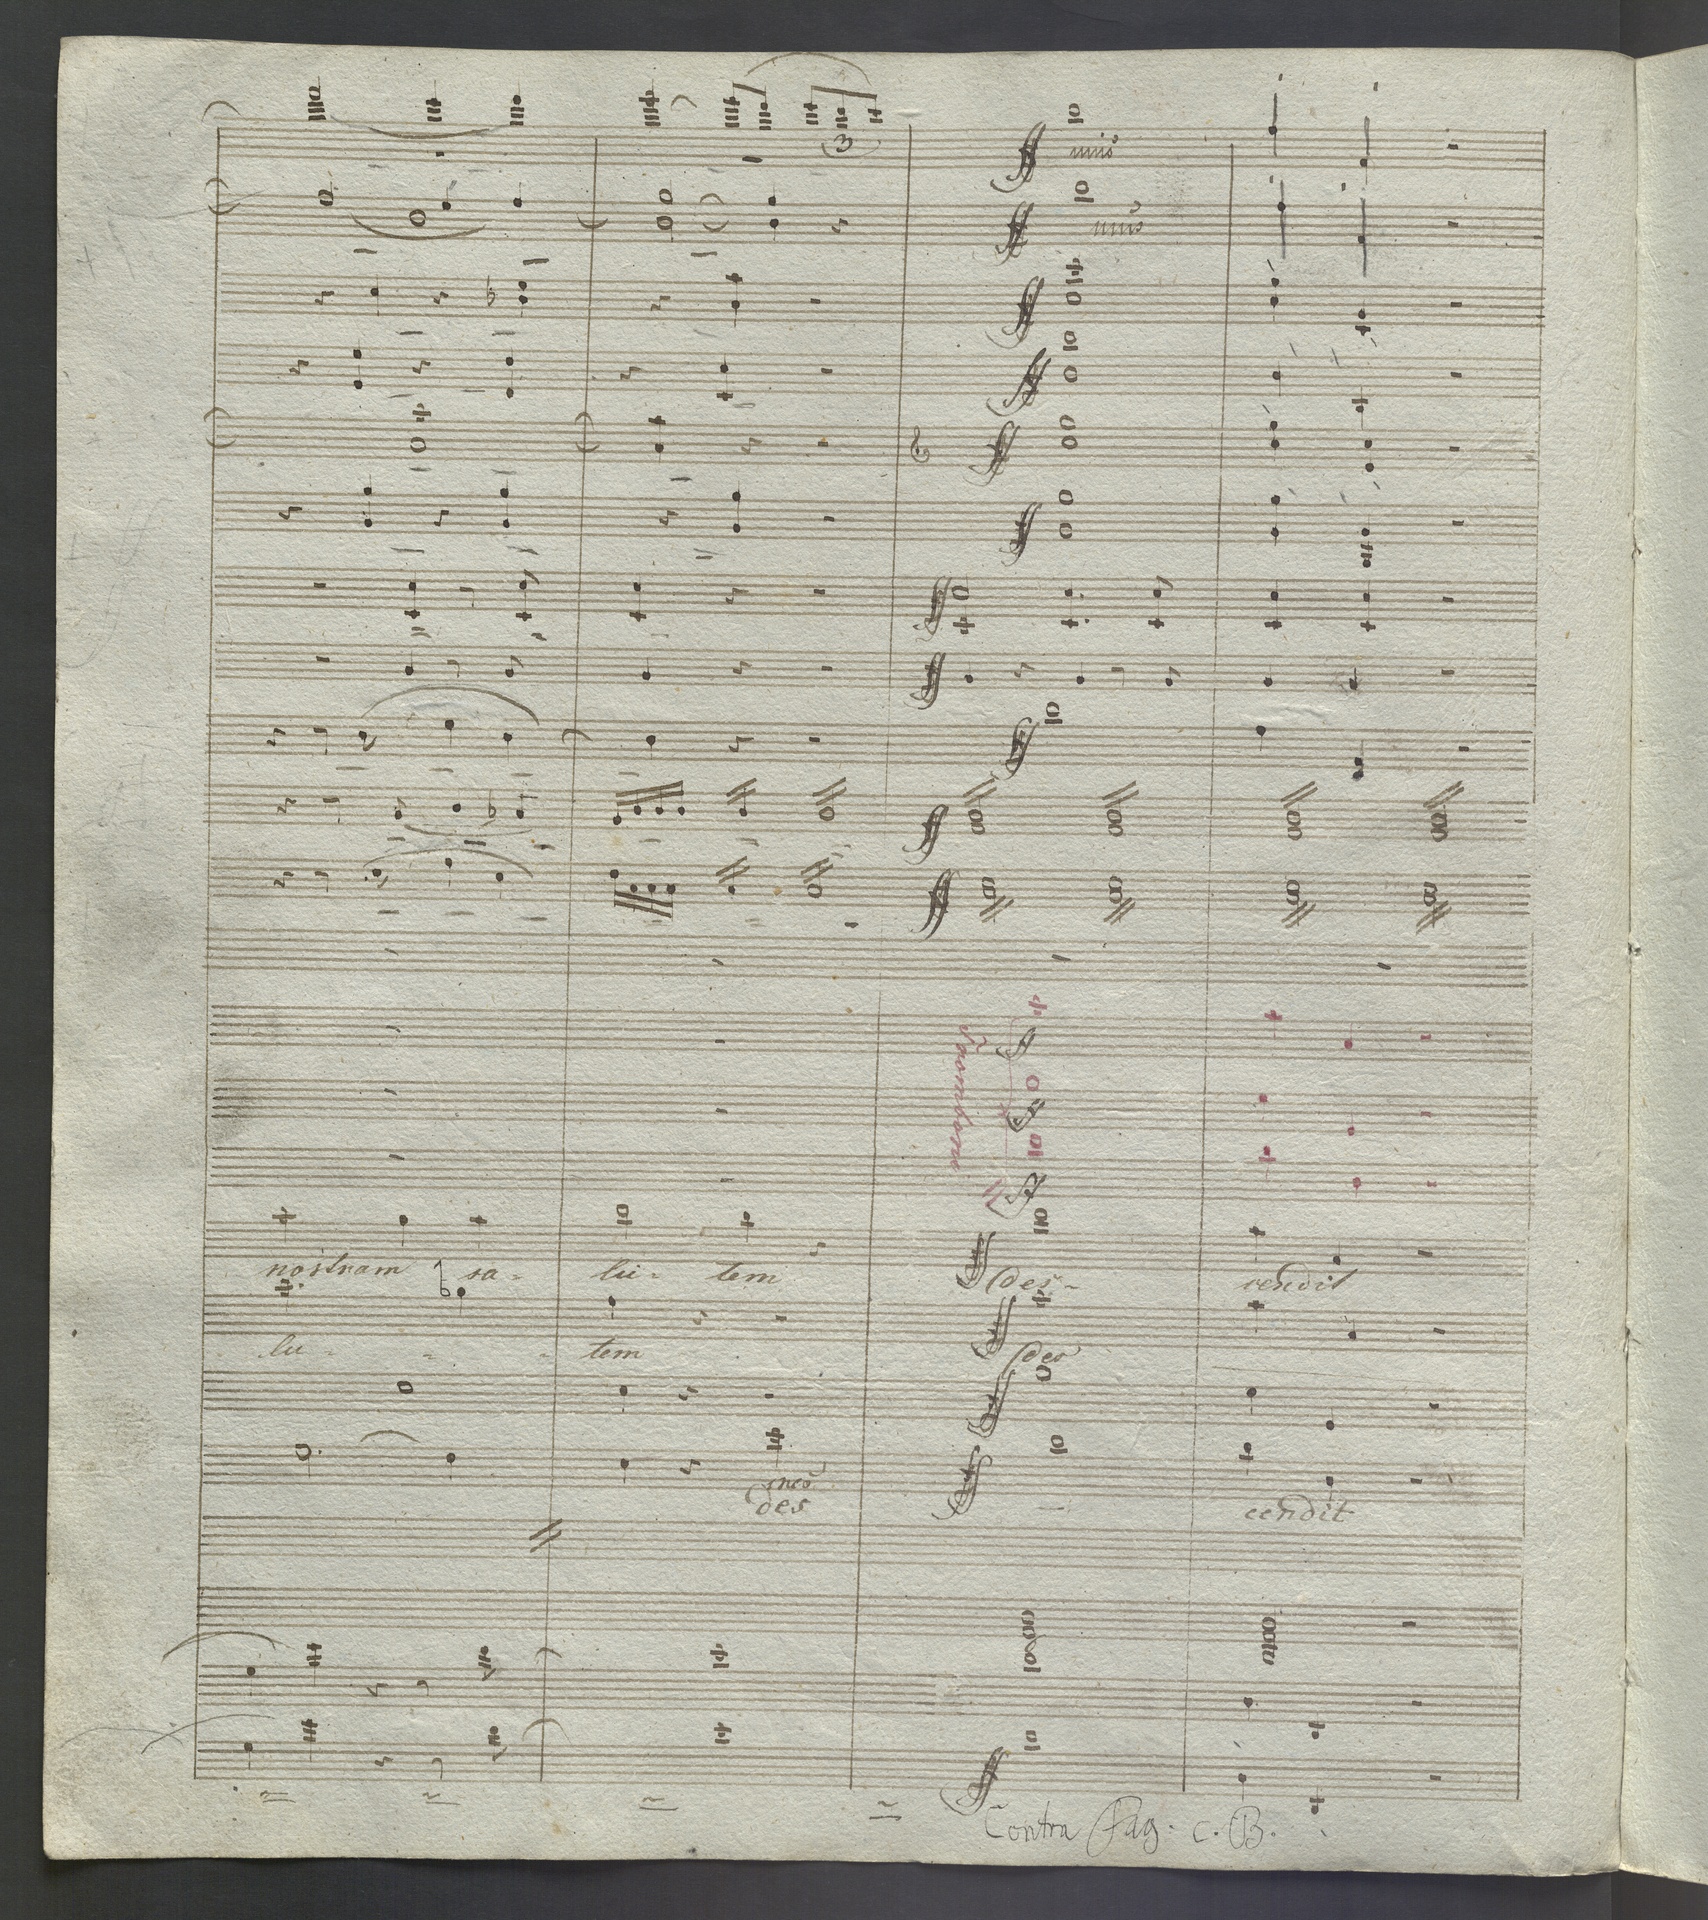 3
unis
unis
Tromboni
nostram sa- lu- tem des- cendit
lu - - - tem des
unis
des — cendit
Contra Fag. c. B.